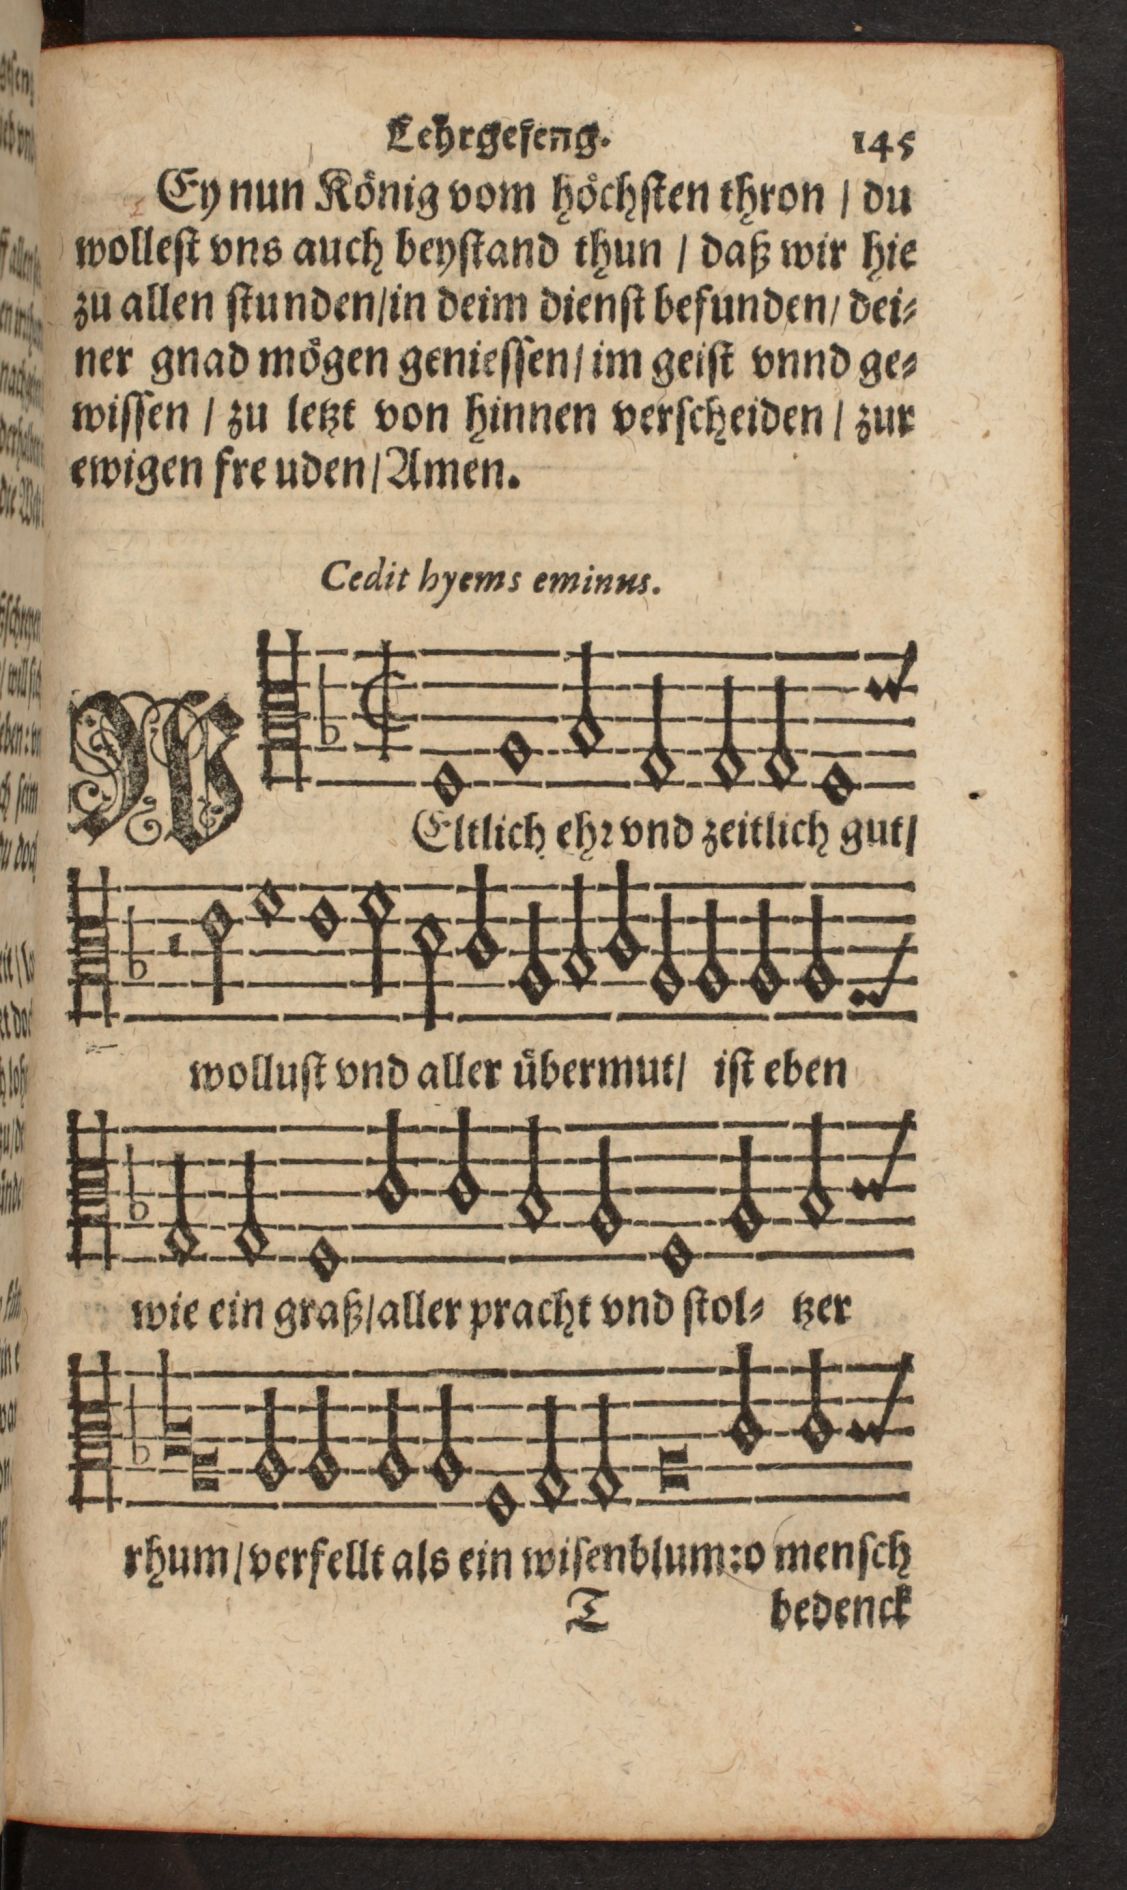 Lehrgeseng. 145
Ey nun König vom höchsten thron / du
wollest vns auch beystand thun / daß wir hie
zu allen stunden/in deim dienst befunden/ dei⸗
ner gnad mögen geniessen/ im geist vnnd ge⸗
wissen / zu letzt von hinnen verscheiden / zur
ewigen freuden/ Amen.
Cedit hyems eminus.
WEltlich ehr vnd zeitlich gut/
wollust vnd aller übermut/ ist eben
wie ein graß/aller pracht vnd stol⸗ tzer
rhum/verfellt als ein wisenblum:o mensch
T bedenck